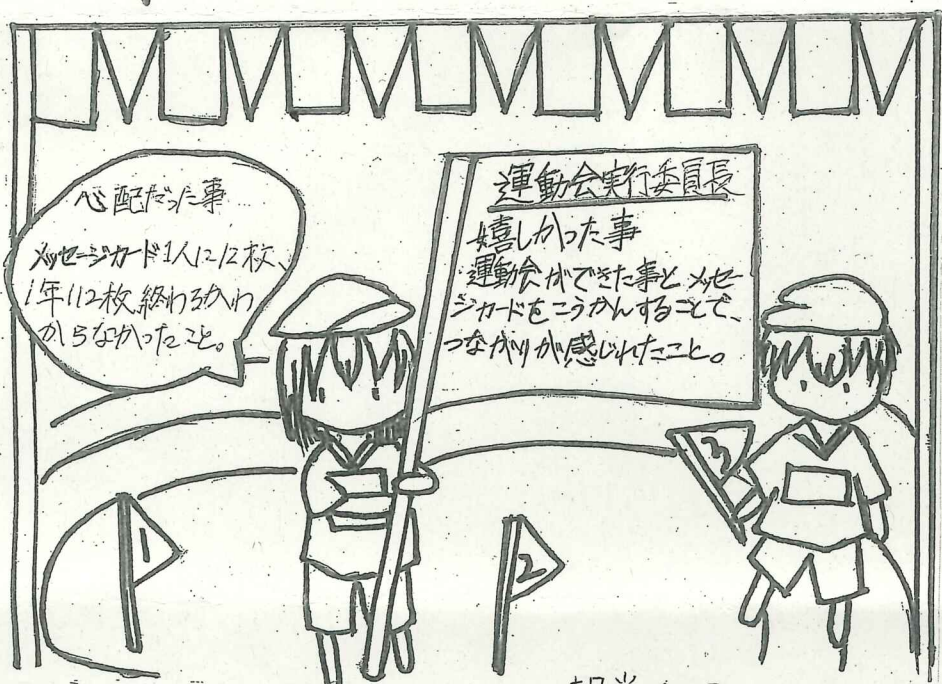 心配だった事
メッセージカード1人に12枚、
1年112枚終わるかわ
からなかったこと。
運動会実行委員長
嬉しかった事
運動会ができた事とメッセー
ジカードをこうかんすることで、
つながりが感じれたこと。
3
1
2